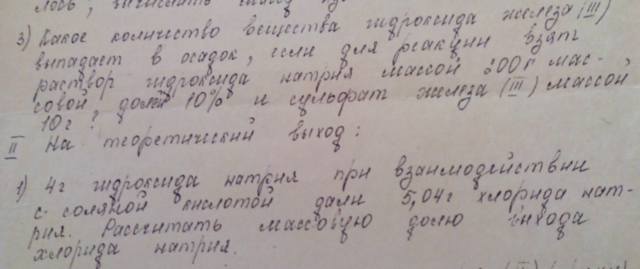 3) Какое количество вещества гидроксида железа (III)
выпадает в осадок, если для реакции взят
раствор гидроксида натрия массой 200г мас-
совой долей 10% и сульфат железа (III) массой
10г?
II На теоретический выход:
1) 4г гидроксида натрия при взаимодействии
с соляной кислотой дали 5,04г хлорида нат-
рия. Рассчитать массовую долю выхода
хлорида натрия.